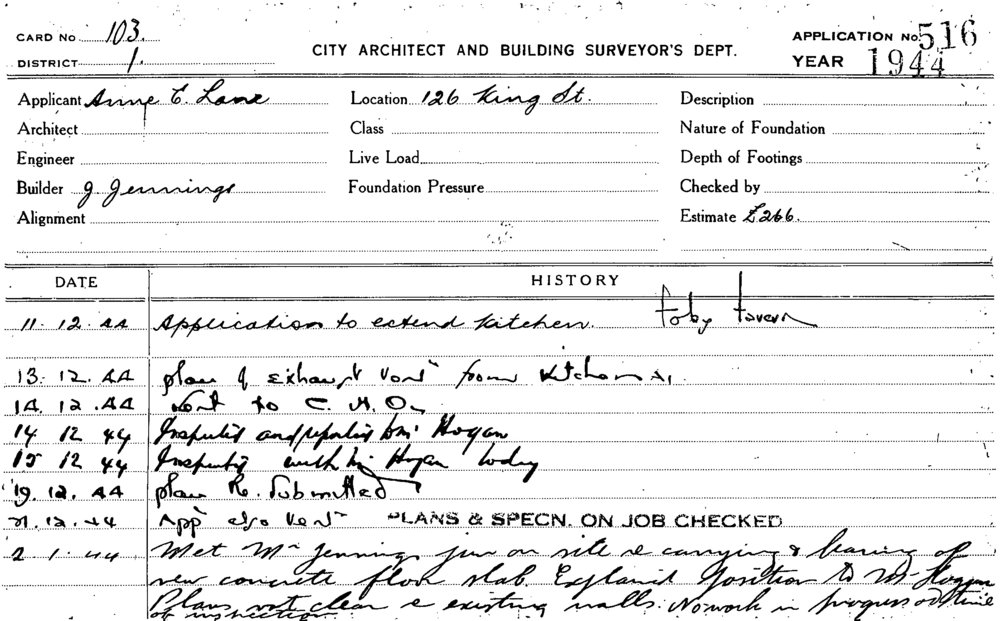 CARD No 103.
DISTRICT 1.
CITY ARCHITECT AND BUILDING SURVEYOR'S DEPT.
APPLICATION No. 516
YEAR 1944
Applicant Anne E. Lane Location 126 King St. Description
Architect Class Nature of Foundation
Engineer Live Load Depth of Footings
Builder J Jennings Foundation Pressure Checked by
Alignment Estimate £266.
DATE HISTORY
11.12.44 Application to extend kitchen. Toby Tavern
13.12.44 plan of exhaust vent from kitchen
14.12.44 sent to C.H.O.
14 12 44 Inspected and reported to Mr Hogan
15 12 44 Inspected with Mr Hogan today
19.12.44 plan Re. Submitted
21.12.44 App also vent PLANS & SPECN. ON JOB CHECKED
2.1.44 Met Mr Jennings jun on site re carrying & bearing of
new concrete floor slab. Explained position to Mr Hogan
Plans not clear re existing walls. No work in progress at time
of inspection